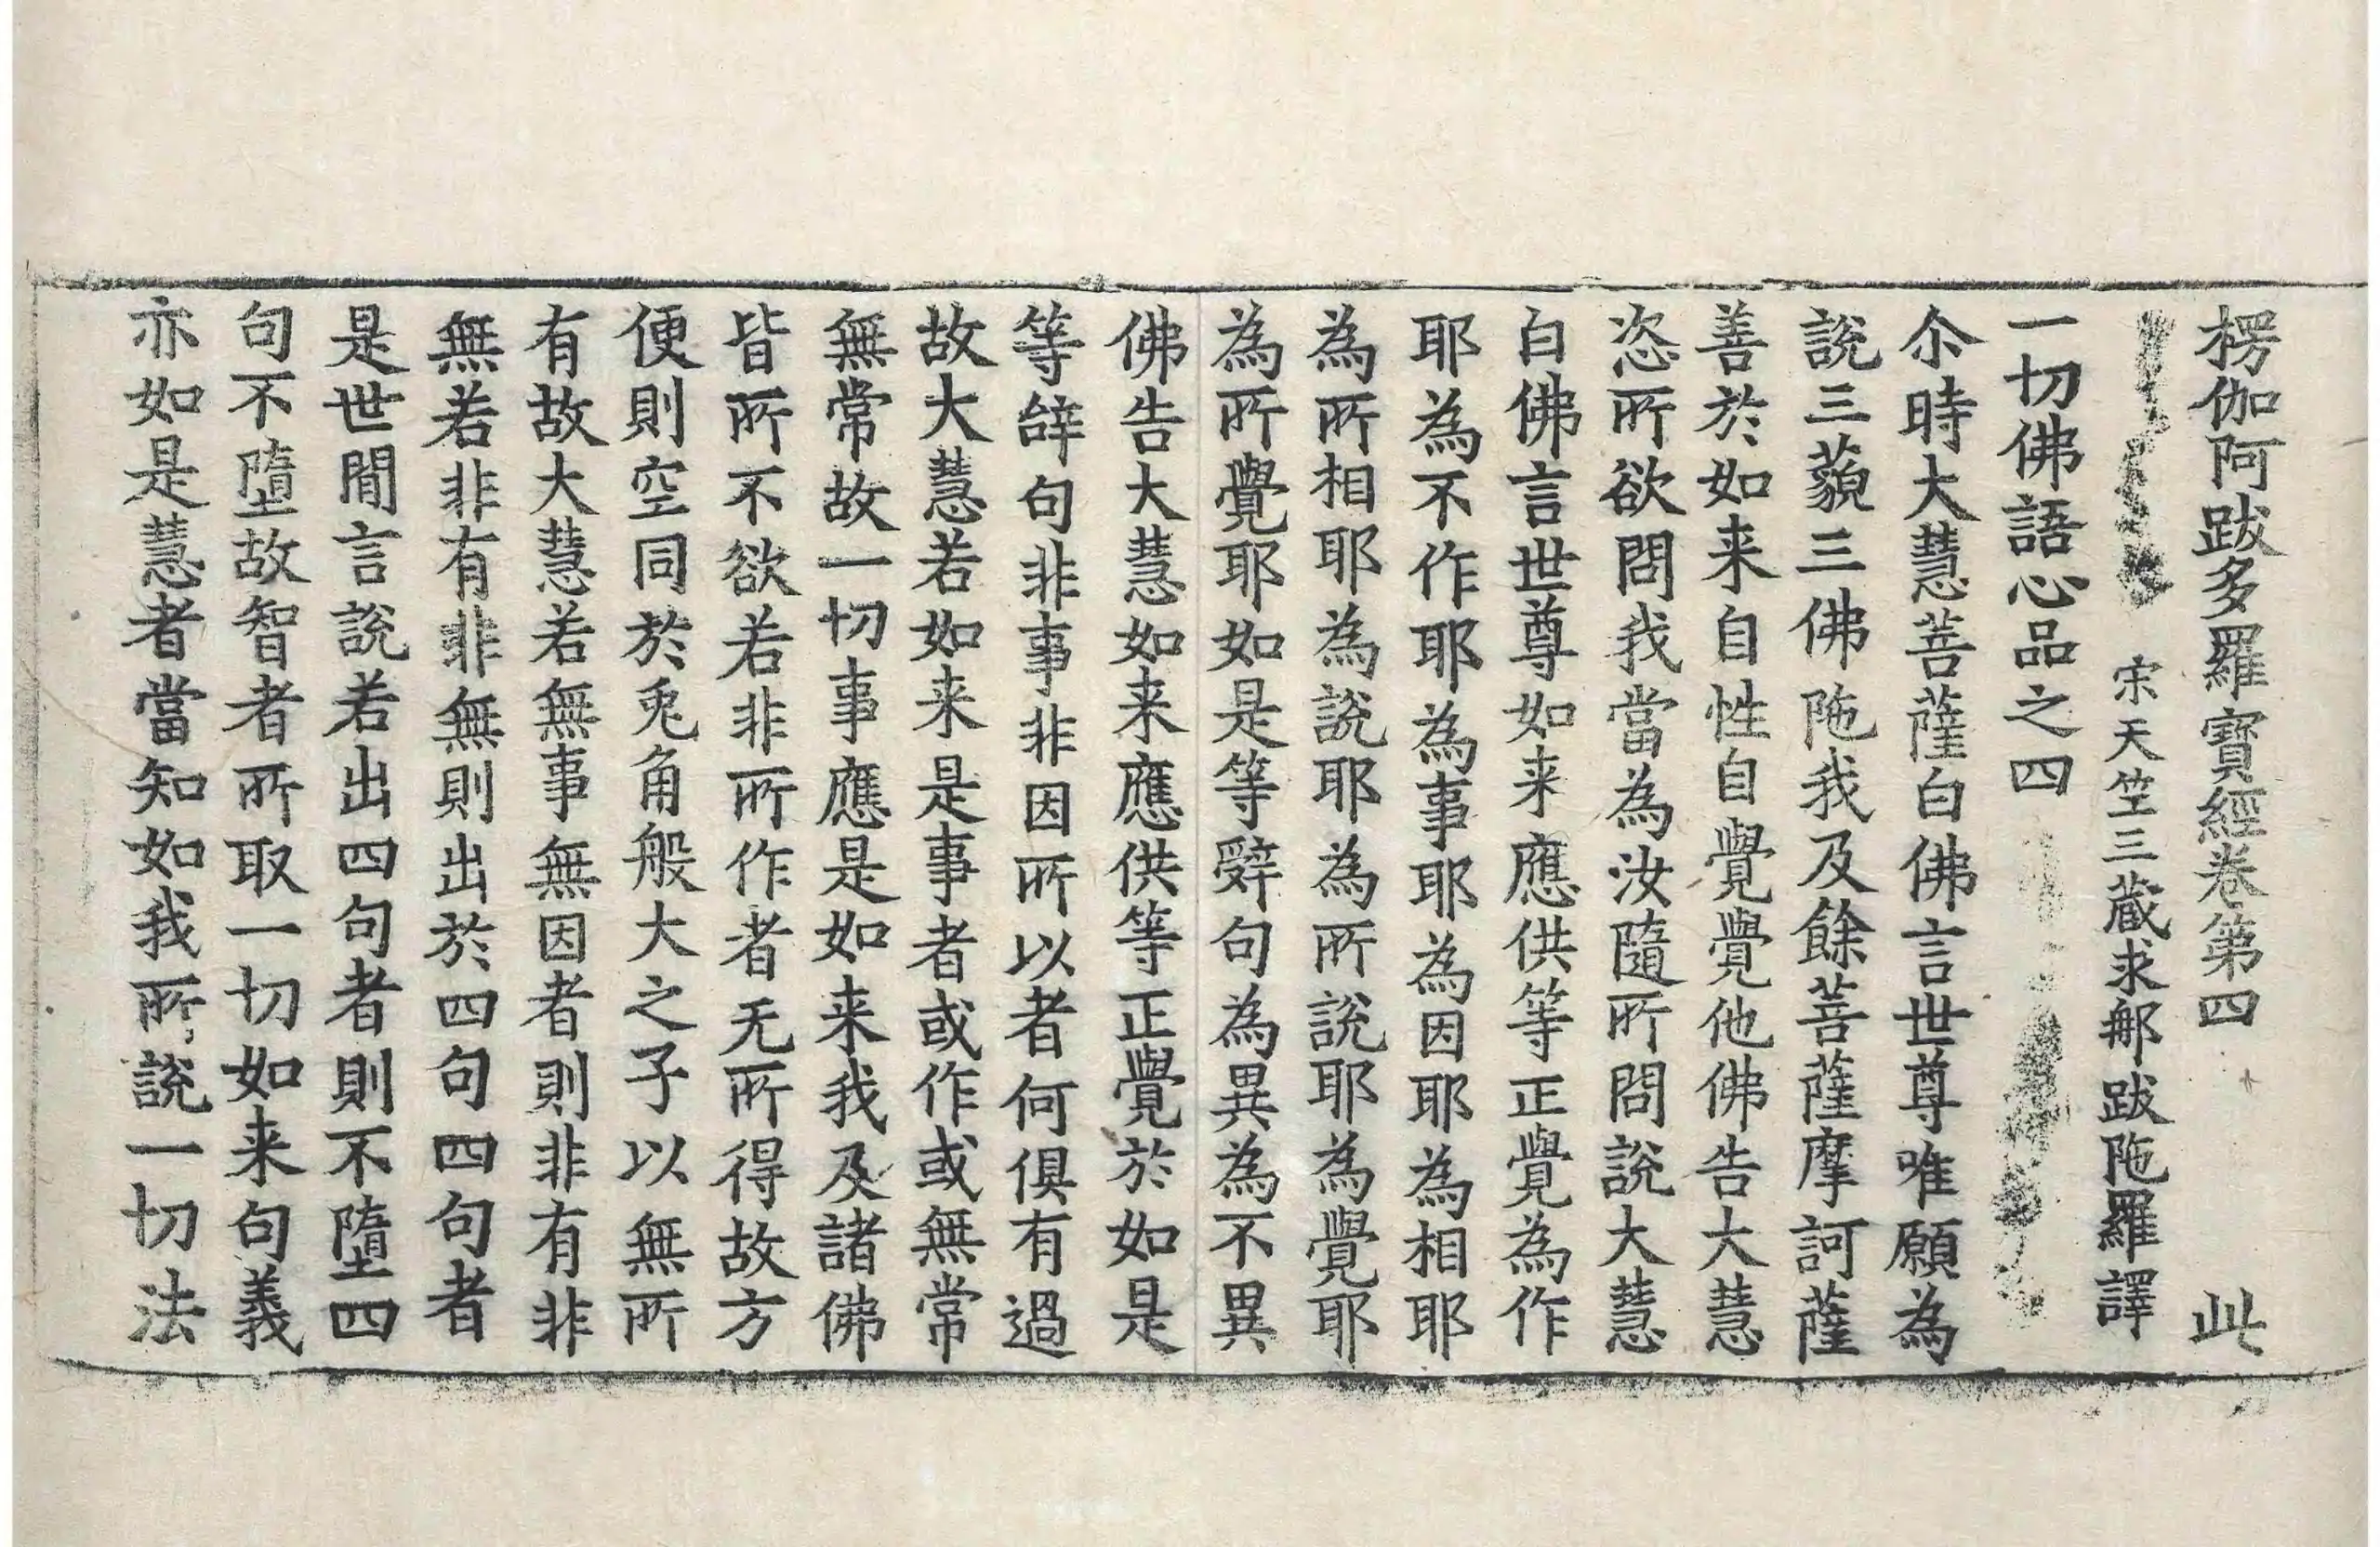 楞伽阿跋多羅寶經卷第四 此
宋天竺三藏求郍跋陁羅譯
一切佛語心品之四
尒時大慧菩薩白佛言世尊唯願為
說三藐三佛陁我及餘菩薩摩訶薩
善於如来自性自覺覺他佛告大慧
恣所欲問我當為汝隨所問說大慧
白佛言世尊如来應供等正覺為作
耶為不作耶為事耶為因耶為相耶
為所相耶為說耶為所說耶為覺耶
為所覺耶如是等辤句為異為不異
佛告大慧如来應供等正覺於如是
等辝句非事非因所以者何俱有過
故大慧若如来是事者或作或無常
無常故一切事應是如来我及諸佛
皆所不欲若非所作者无所得故方
便則空同於兎角般大之子以無所
有故大慧若無事無因者則非有非
無若非有非無則出於四句四句者
是世間言說若出四句者則不墮四
句不墮故智者所取一切如来句義
亦如是慧者當知如我所說一切法